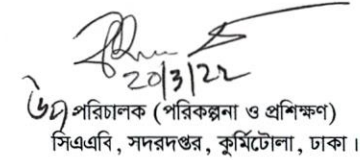 20/3/22
উপ পরিচালক (পরিকল্পনা ও প্রশিক্ষণ)
সিএএবি, সদরদপ্তর, কুর্মিটোলা, ঢাকা।